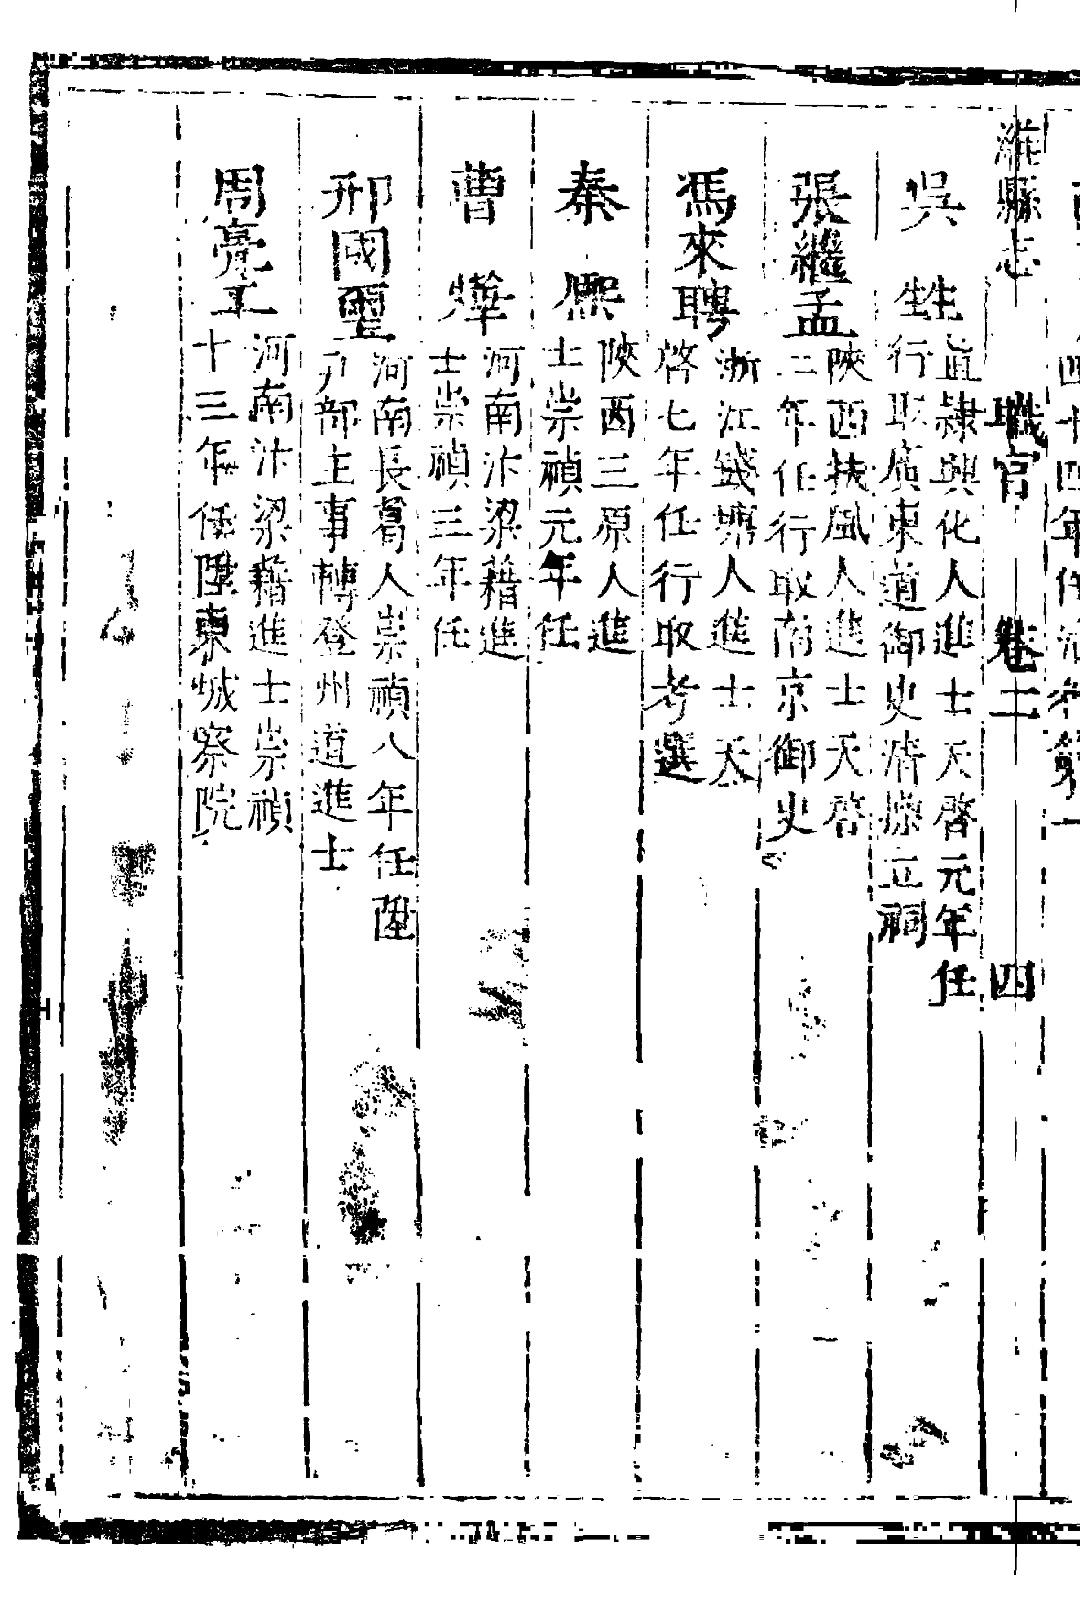 四十四年任
濰縣志 職官 卷二 四
吳甡
直隸興化人進士天啓元年任
行取廣東道御史立祠
張繼孟
陝西扶風人進士天啓
二年任行取南京御史
馮來聘
浙江錢塘人進士天
啓七年任行取考選
秦熙
陝西三原人進
士崇禎元年任
曹燁
河南汴梁籍進
士崇禎三年任
邢國璽
河南長葛人崇禎八年任陞
戶部主事轉登州道進士
周亮工
河南汴梁籍進士崇禎
十三年任陞東城察院